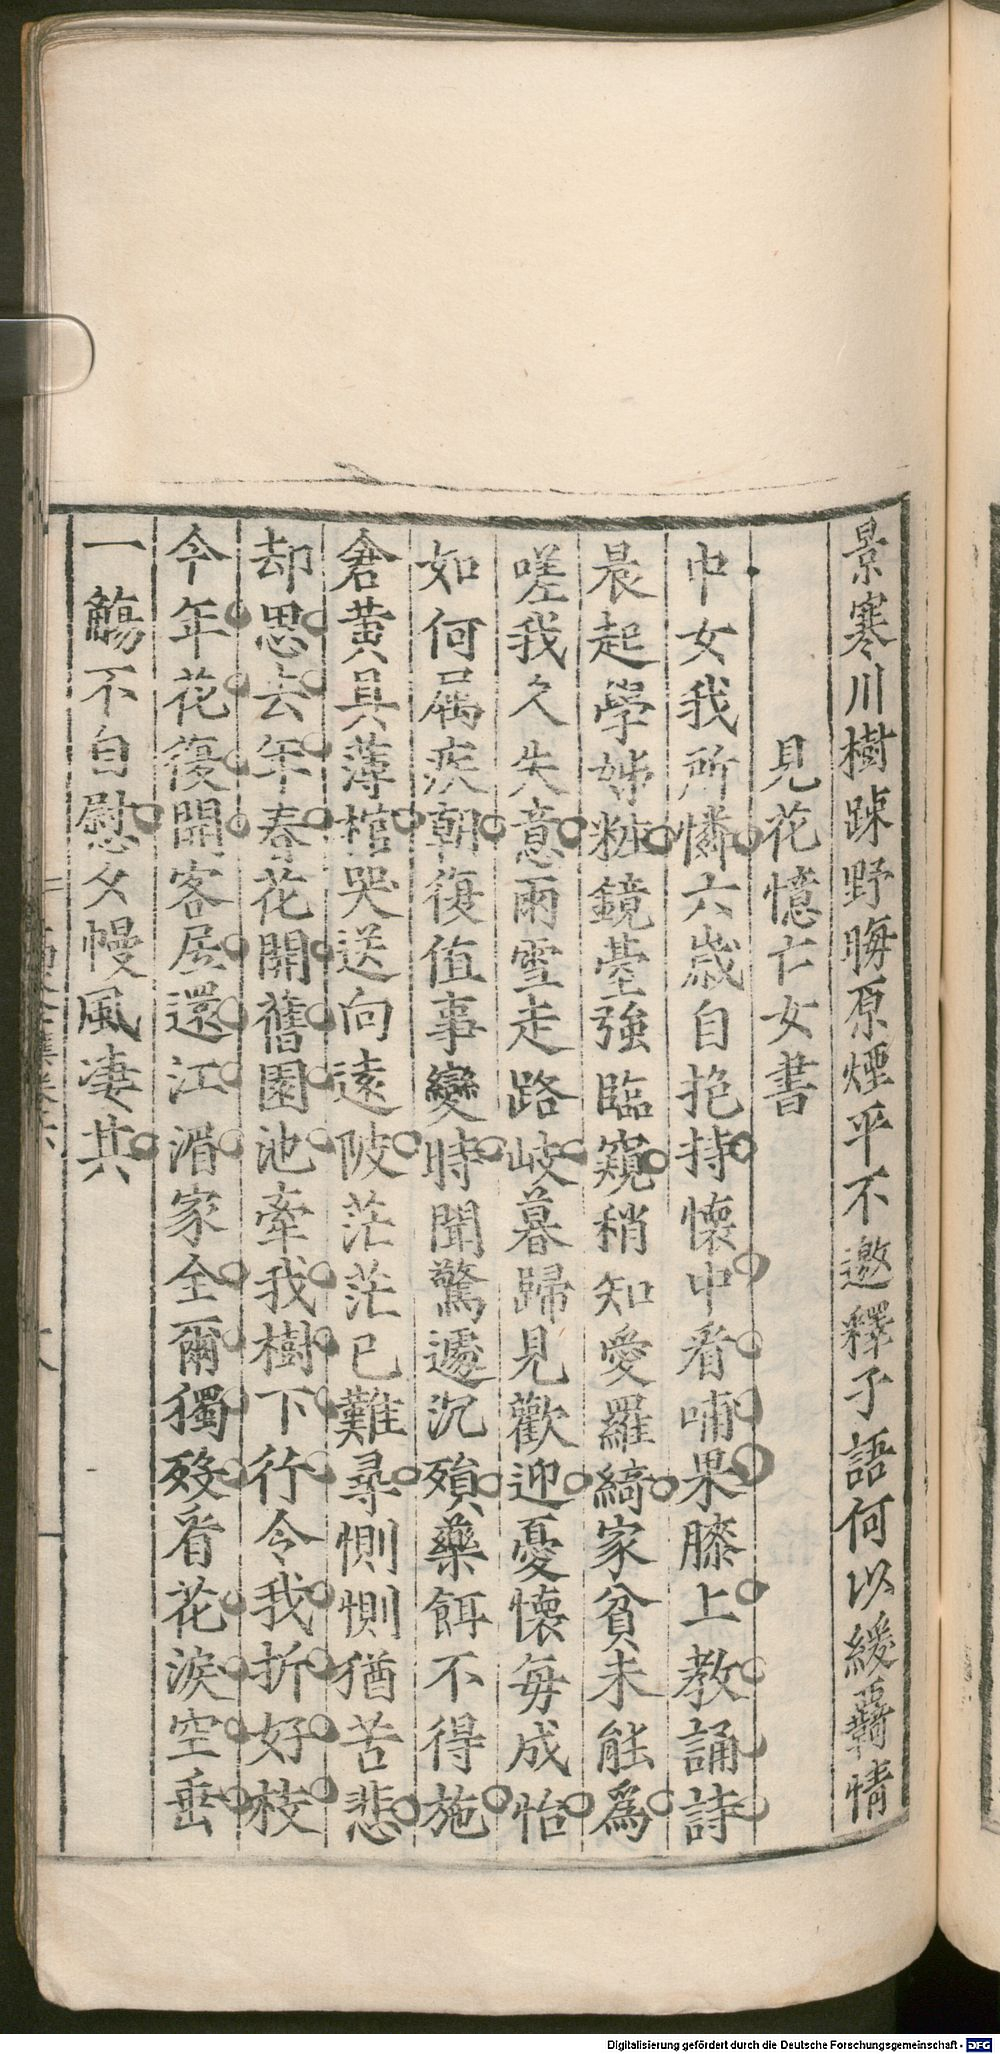 景寒川樹踈野晦原煙平不邀釋子語何以緩羈情
見花憶亡女書
中女我所憐六歲自抱持懷中看哺果膝上教誦詩
晨起學姊粧鏡臺強臨窺稍知愛羅縞家貧未能爲
嗟我久失意雨雪走路岐暮歸見歡迎憂懷每成怡
如何屬疾朝復值事變時聞驚遽沉殞藥餌不得施
倉黄具薄棺哭送向遠陂茫茫已難尋惻惻猶苦悲
却思去年春花開舊園池牽我樹下行令我折好枝
今年花復開客居還江湄家全爾獨歿看花淚空垂
一觴不自慰夕幔風凄其
Digitalisierung gefördert durch die Deutsche Forschungsgemeinschaft - DFG